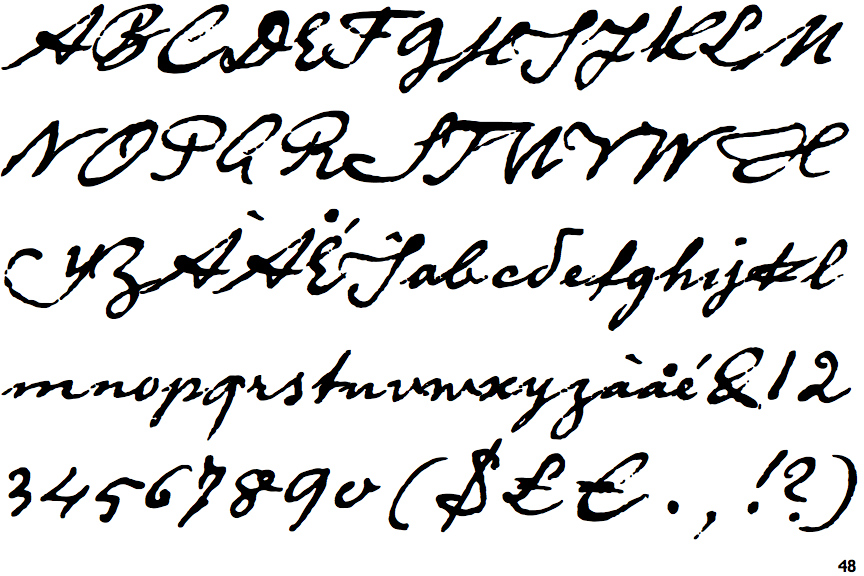 ABCDEFGHIJKLM
NOPQRSTUVWX
YZÀÅÉÎabcdefghijkl
mnopqrstuvwxyzàåé&12
34567890($£€.,!?)
48